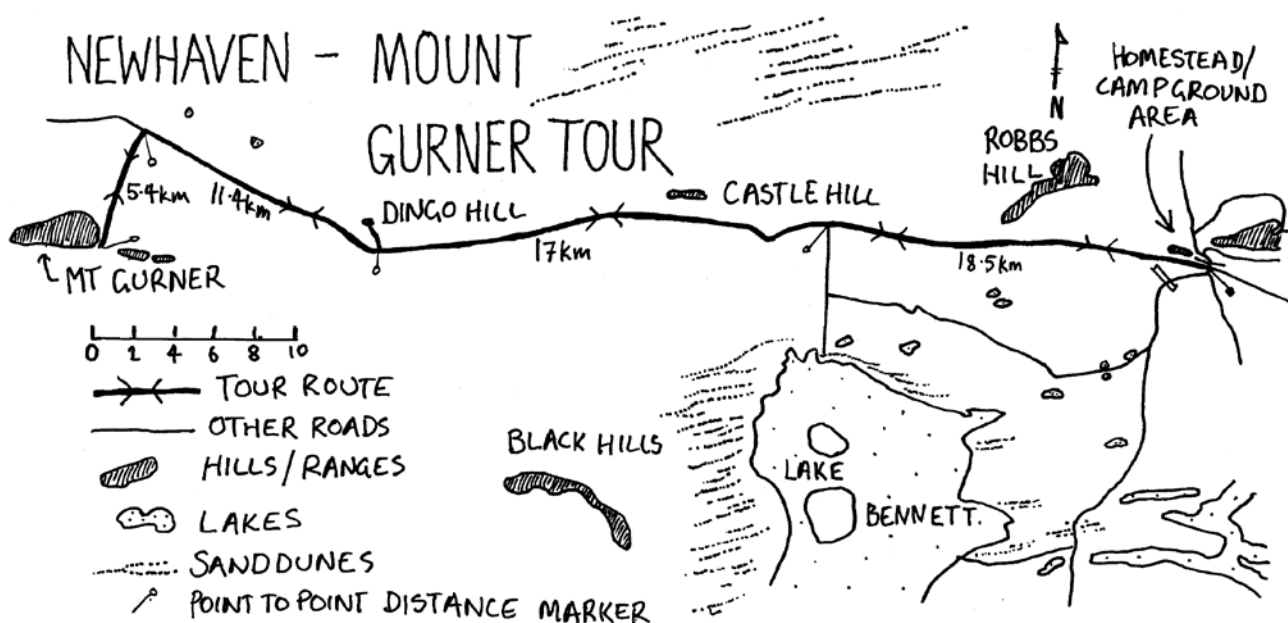 NEWHAVEN - MOUNT
GURNER TOUR
N
HOMESTEAD/
CAMPGROUND
AREA
ROBBS
HILL
5.4km
11.4km
DINGO HILL
CASTLE HILL
17km
18.5km
MT GURNER
0 2 4 6 8 10
TOUR ROUTE
OTHER ROADS
HILLS/RANGES
LAKES
SANDDUNES
POINT TO POINT DISTANCE MARKER
BLACK HILLS
LAKE
BENNETT.